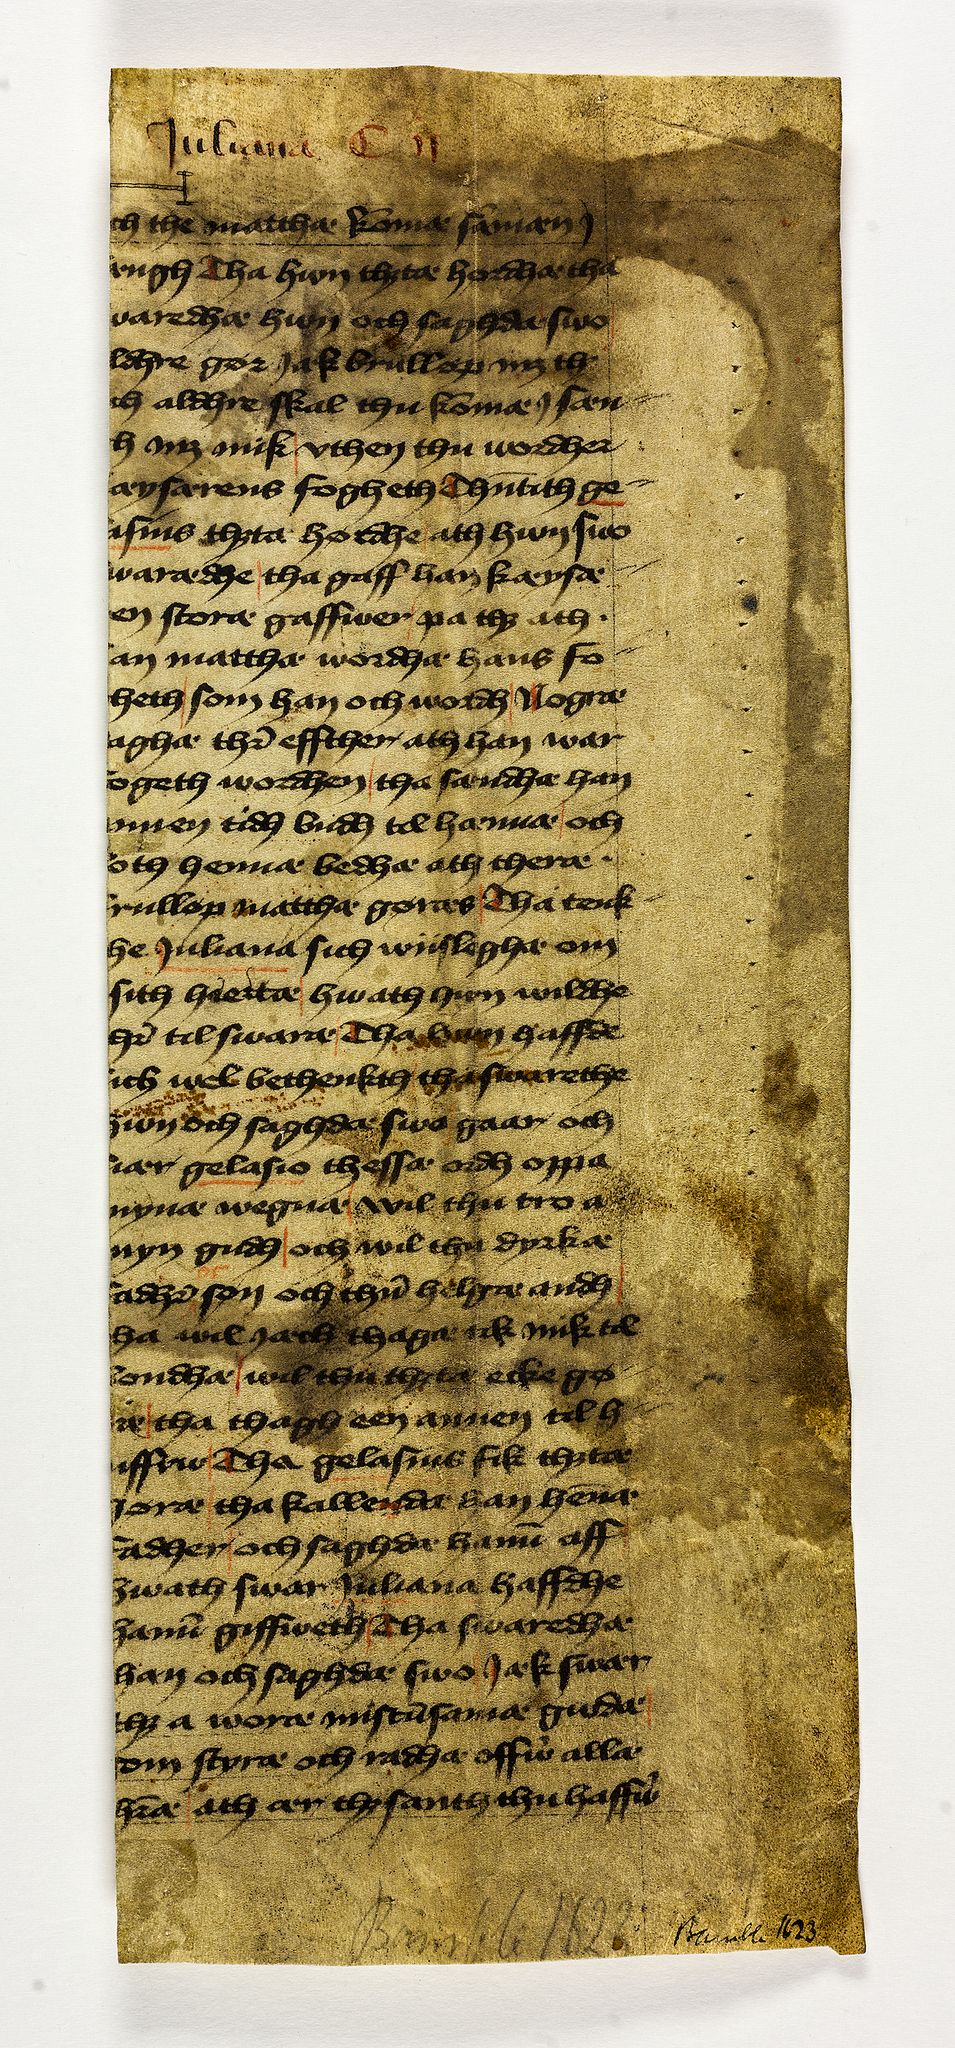 Juliana C ij
ch the matthæ komæ saman j
ængh Tha hwn thytæ hordhæ tha
waredhæ hwn och saghdæ swo
ldhre gor jak brullop mz th
ch aldhre skal thu komæ j sæn
h mz mik vthen thu wordher
æysærens fogheth Thn̄ tith ge
asius thytæ hordhe ath hwn swo
waræ dhe tha gaff han kæysæ
en storæ gaffwer pa thz ath
an matthæ wordhæ hans fo
heth som han och wordh Nogræ
aghæ thr̄ effther ath han war
ogeth wordhen tha sændhæ han
nnen tidh budh tel hænnæ och
oth hennæ bedhæ ath theræ
rullop matthæ goræs Tha tenk
he Juliana sich wiisleghæ om
sith hiertæ hwath hwn wildhe
thr̄ til swaræ Tha hwn haffde
ich wel bethenkth tha swarethe
hwn och saghdæ swo gaar och
iær gelasio thessæ ordh oppa
mynæ wegnæ wil thu tro a
myn gudh och wil thu dyrkæ
adhr̄ son och thn̄ helgæ andh
ha wil jæch thagæ tik mik tel
ondhæ wil thu thytæ ecke go
æ tha thagh een annen til h
uffrw Tha gelasius fik thytæ
horæ tha kallendæ han hēnæ
fadher och saghdæ hanū aff
hwath swar Juliana haffdhe
hanū giffweth Tha swaredhæ
han och saghdæ swo Jæk swær
thz a woræ miscūsamæ gudæ
om styræ och radhæ offw̄ allæ
ath ær thz santh thu haffw̄
Bamble 1623
Bamble 1623